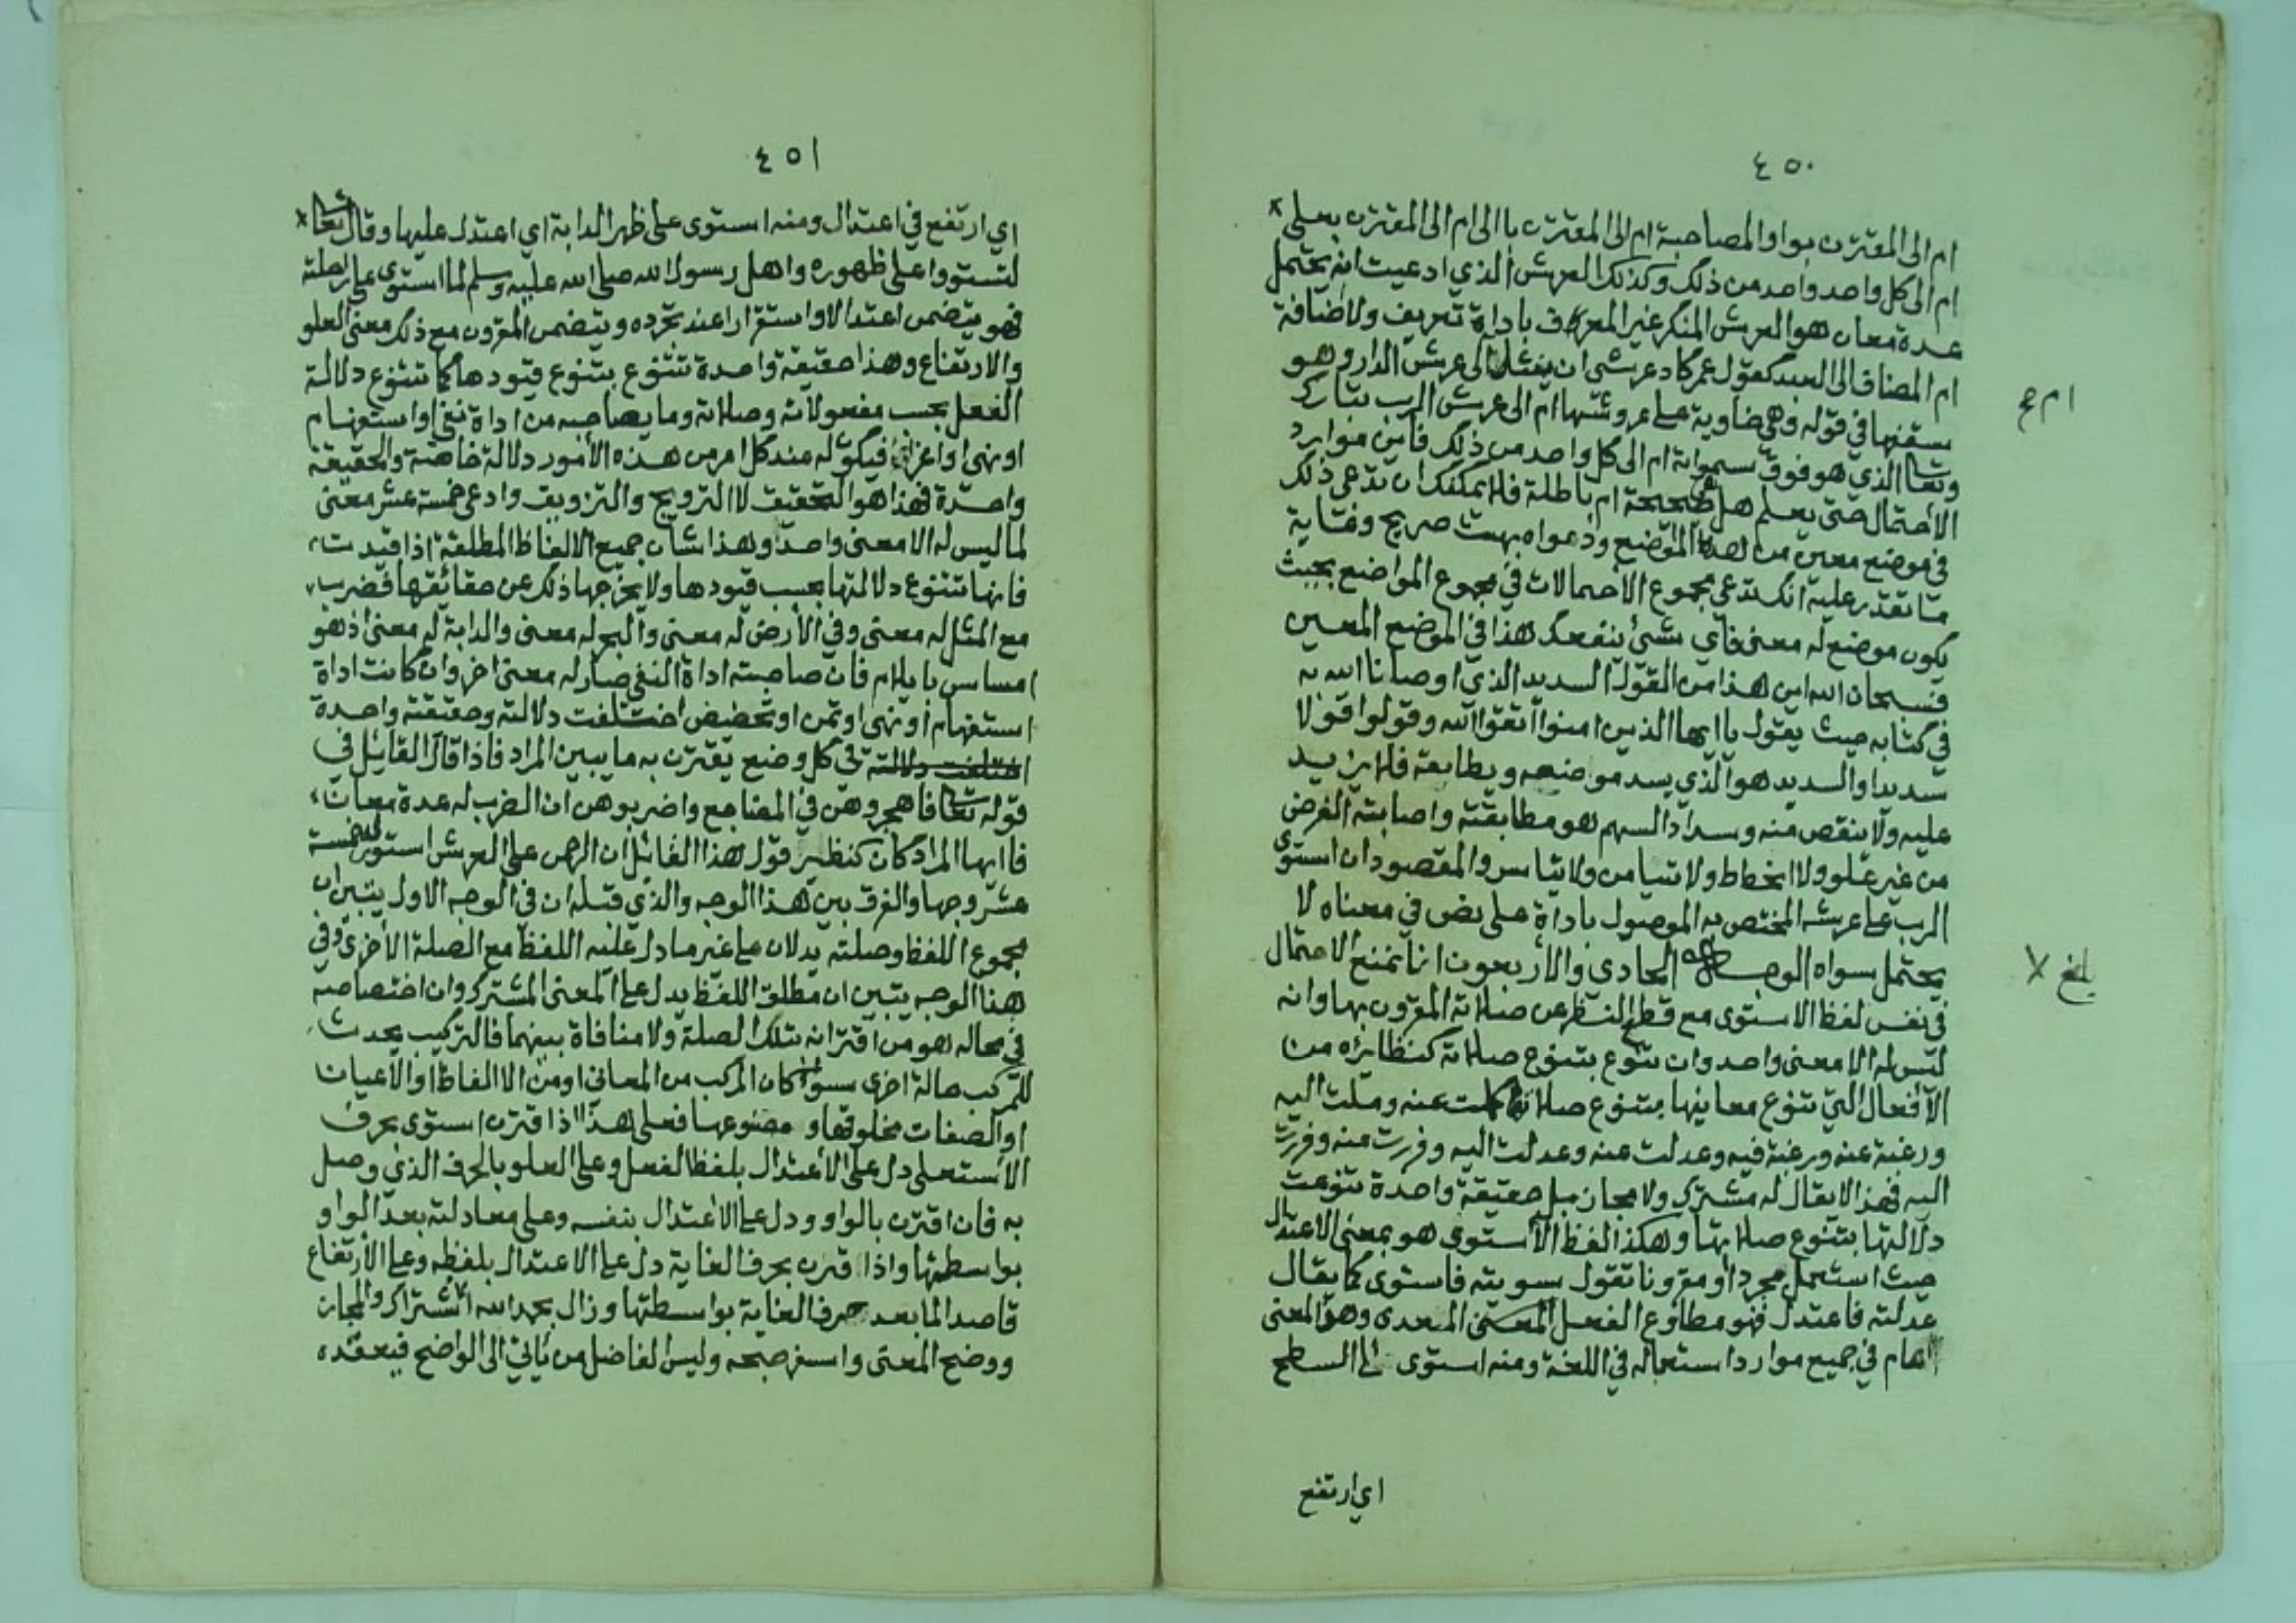 ٤٥٠
ام الى المقترن بواو المصاحبة ام الى المقترن بالى ام الى المقترن بعلى
ام الى كل واحد واحد من ذلك وكذلك العرش الذي ادعيت انه يحتمل
عدة معان هو العرش المنكر غير المعرف باداة تعريف ولا اضافة
ام المضاف الى العبد كقول عمر كاد عرشي ان يثل ام الى عرش الدار وهو
سقفها في قوله وهي خاوية على عروشها ام الى عرش الرب تبارك
وتعا الذي هو فوق سمواته ام الى كل واحد من ذلك فاين موارد
الاحتمال حتى يعلم هل هي صحيحة ام باطلة فلا يمكنك ان تدعي ذلك
في موضع معين من هذه المواضع ودعواه بهت صريح وغاية
ما تقدر عليه انك تدعي مجموع الاحتمالات في مجموع المواضع بحيث
يكون موضع له معنى فاي شئ ينفعك هذا في الموضع المعين
فسبحان الله اين هذا من القول السديد الذي اوصانا الله به
في كتابه حيث يقول يا ايها الذين امنوا اتقوا الله وقولوا قولا
سديدا والسديد هو الذي يسد موضعه ويطابقه فلا يزيد
عليه ولا ينقص منه وسداد السهم هو مطابقته واصابته الغرض
من غير علو ولا انحطاط ولا تيامن ولا تياسر والمقصود ان استوى
الرب على عرشه المختص به الموصول باداة على نص في معناه لا
يحتمل سواه الوجه الحادي والاربعون انا نمنع الاحتمال
في نفس لفظ الاستوى مع قطع النظر عن صلاته المقرون بها وانه
ليس له الا معنى واحد وان تنوع بتنوع صلاته كنظايره من
الافعال التي تتنوع معانيها بتنوع صلاتها كملت عنه وملت اليه
ورغبة عنه ورغبة فيه وعدلت عنه وعدلت اليه وفررت منه وفررت
اليه فهذا لا يقال له مشترك ولا مجاز بل حقيقة واحدة تنوعت
دلالتها بتنوع صلاتها وهكذا لفظ الاستوى هو بمعنى الاعتدال
حيث استعمل مجردا او مقرونا تقول سويته فاستوى كما يقال
عدلته فاعتدل فهو مطاوع الفعل المتعدي وهو المعنى
العام في جميع موارد استعماله في اللغة ومنه استوى الى السطح
اي ارتفع
ام صح
بلغ
٤٥١
اي ارتفع في اعتدال ومنه استوى على ظهر الدابة اي اعتدل عليها وقال تعا
لتستووا على ظهوره واهل رسول الله صلى الله عليه وسلم لما استوى على راحلته
فهو يتضمن اعتدالا واستقرارا عند تجرده ويتضمن المقرون مع ذلك معنى العلو
والارتفاع وهذا حقيقة واحدة تتنوع بتنوع قيودها كما تتنوع دلالة
الفعل بحسب مفعولاته وصلاته وما يصاحبه من اداة نفي او استفهام
او نهي او اغراء فيكون له عند كل امر من هذه الامور دلالة خاصة والحقيقة
واحدة فهذا هو التحقيق لا الترويج والتزويق وادعى خمسة عشر معنى
لما ليس له الا معنى واحدا وهذا شان جميع الالفاظ المطلقة اذا قيدت
فانها تتنوع دلالتها بحسب قيودها ولا يخرجها ذلك عن حقائقها فضرب
مع المثل له معنى وفي الارض له معنى والبحر له معنى والدابة له معنى اذ هو
امساس بايلام فان صاحبته اداة النفي صار له معنى اخر وان كانت اداة
استفهام او نهي او تمن او تحضيض اختلفت دلالته وحقيقته واحدة
في كل وضيع يقترن به ما يبين المراد فاذا قال القايل في
قوله تعا فاهجروهن في المضاجع واضربوهن ان الضرب له عدة معان
فايها المراد كان كنظير قول هذا القايل ان الرحمن على العرش استوى له خمسة
عشر وجها والفرق بين هذا الوجه والذي قبله ان في الوجه الاول يتبين ان
مجموع اللفظ وصلته يدلان على غير ما دل عليه اللفظ مع الصلة الاخرى وفي
هذا الوجه يتبين ان مطلق اللفظ يدل على المعنى المشترك وان اختصاصه
في محاله هو من اقترانه بتلك الصلة ولا منافاة بينهما فالتركيب يحدث
للمركب حالة اخرى سواء كان المركب من المعاني او من الالفاظ او الاعيان
او الصفات مخلوقها و مصنوعها فعلى هذا اذا اقترن استوى بحرف
الاستعلى دل على الاعتدال بلفظ الفعل وعلى العلو بالحرف الذي وصل
به فان اقترن بالواو ودل على الاعتدال بنفسه وعلى معادلته بعد الواو
بواسطتها واذا اقترن بحرف الغاية دل على الاعتدال بلفظه وعلى الارتفاع
قاصدا لما بعد حرف الغاية بواسطتها وزال بحمد الله الاشتراك والمجاز
ووضح المعنى واسفر صبحه وليس الفاضل من ياتي الى الواضح فيعقده